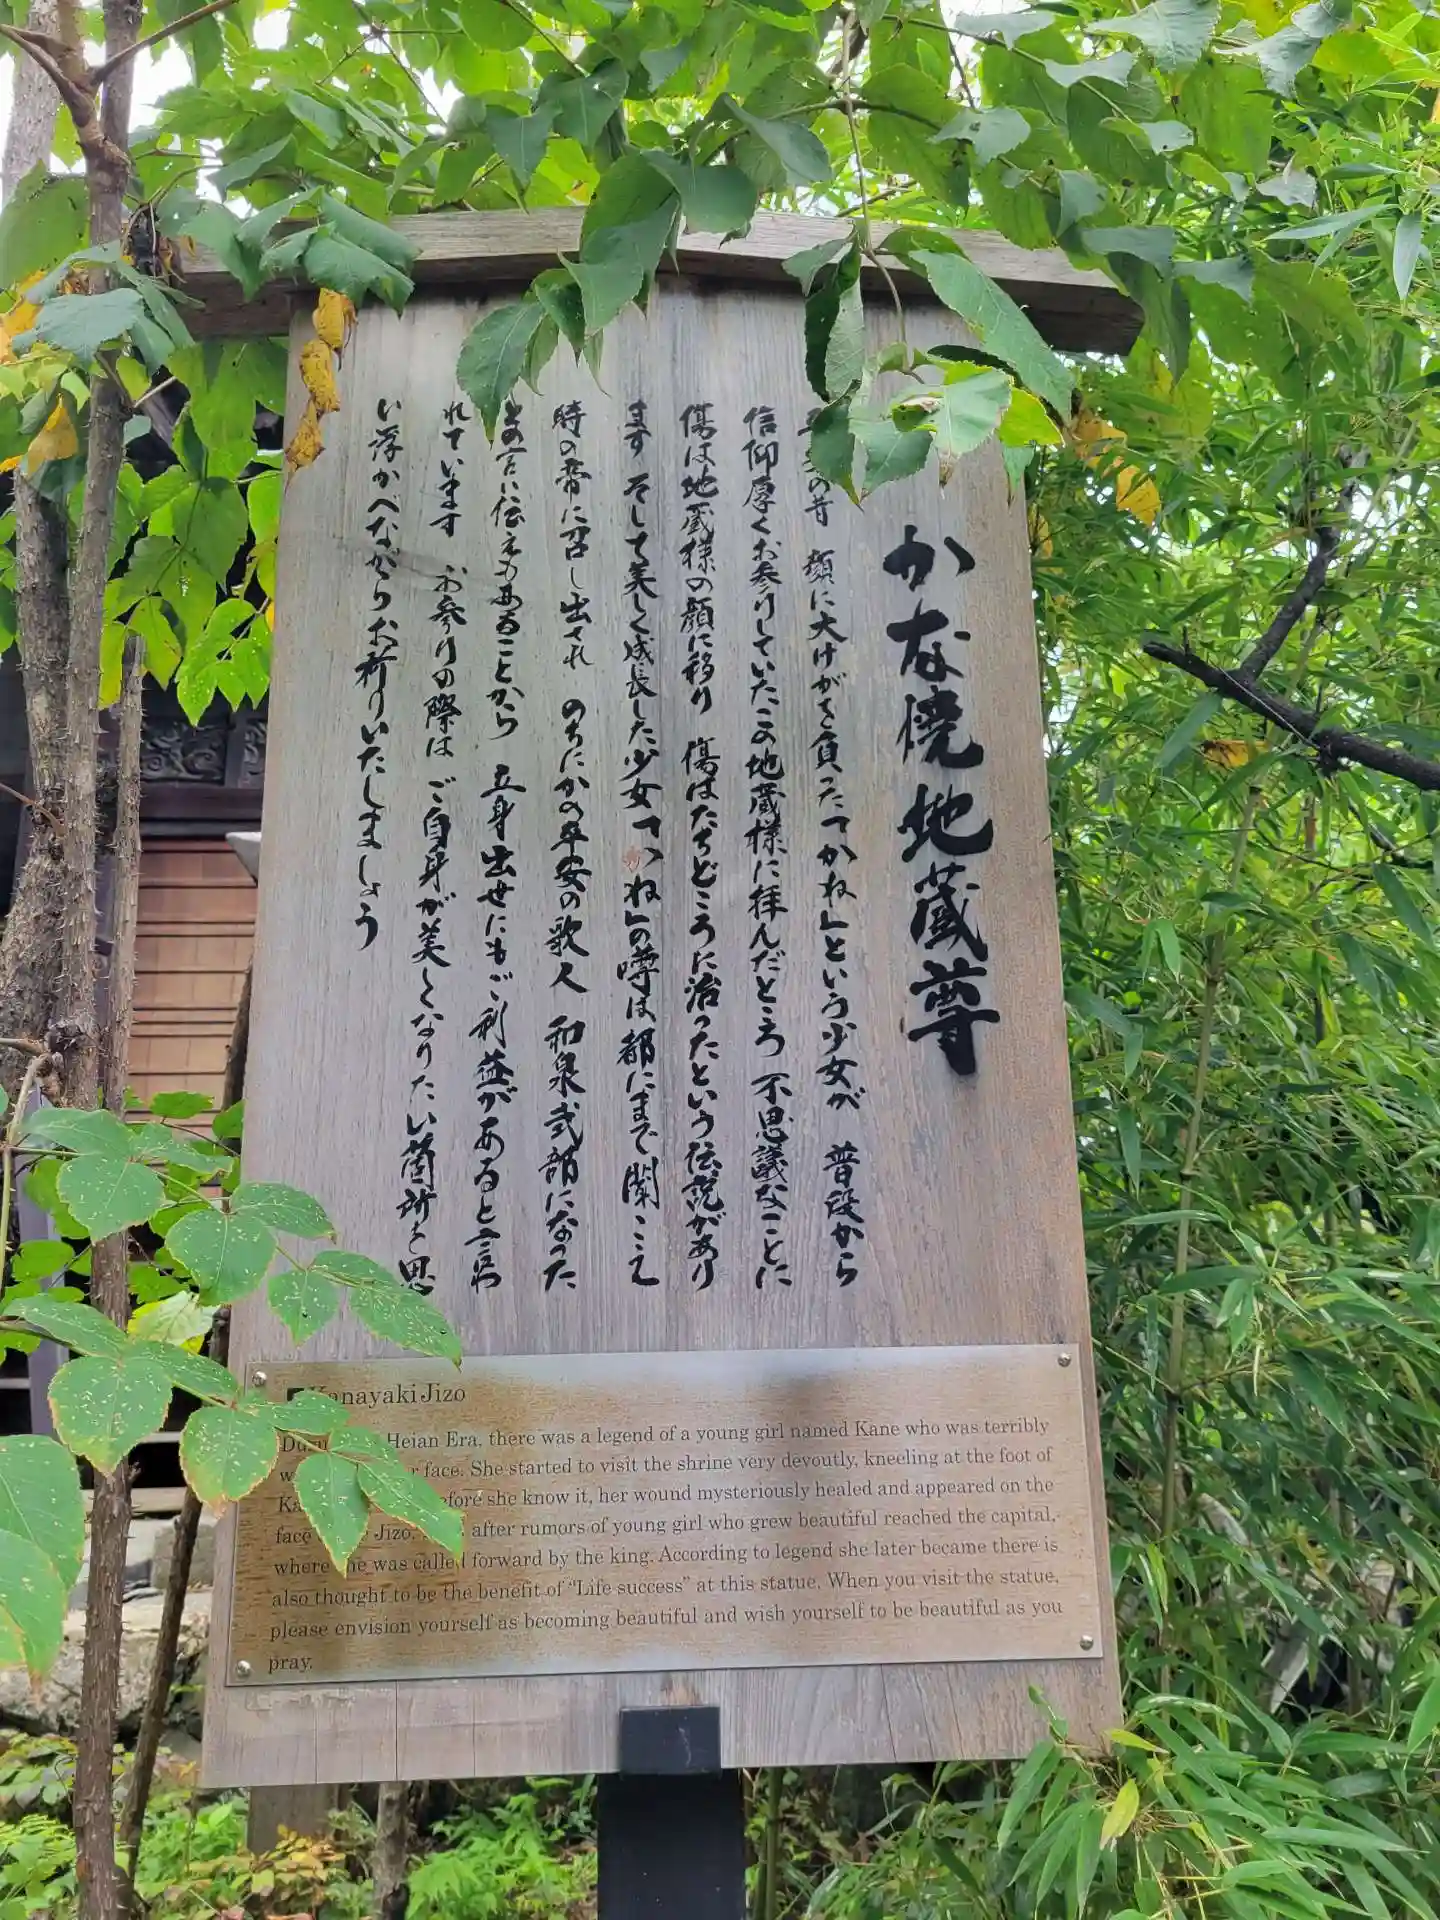 かな焼地蔵尊
の昔 顔に大けがを負った「かね」という少女が 普段から
信仰厚くお参りしていたこの地蔵様に拝んだところ 不思議なことに
傷は地蔵様の顔に移り 傷はたちどころに治ったという伝説があり
ます そして美しく成長した少女「かね」の噂は都にまで聞こえ
時の帝に召し出され のちにかの平安の歌人 和泉式部になった
との言い伝えもあることから 立身出世にもご利益があると言わ
れています お参りの際は ご自身が美しくなりたい箇所を思
い浮かべながらお祈りいたしましょう
Kanayaki Jizo
Heian Era, there was a legend of a young girl named Kane who was terribly
face. She started to visit the shrine very devoutly, kneeling at the foot of
before she know it, her wound mysteriously healed and appeared on the
face Jizo. after rumors of young girl who grew beautiful reached the capital,
where she was called forward by the king. According to legend she later became there is
also thought to be the benefit of "Life success" at this statue. When you visit the statue,
please envision yourself as becoming beautiful and wish yourself to be beautiful as you
pray.